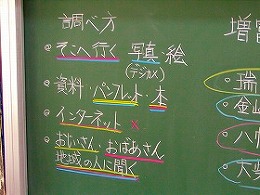 調べ方
・そこへ行く 写真・絵
(デジカメ)
・資料・パンフレット・本
・インターネット ×
・おじいさん・おばあさん
地域の人に聞く
増
瑞
金山
八
大